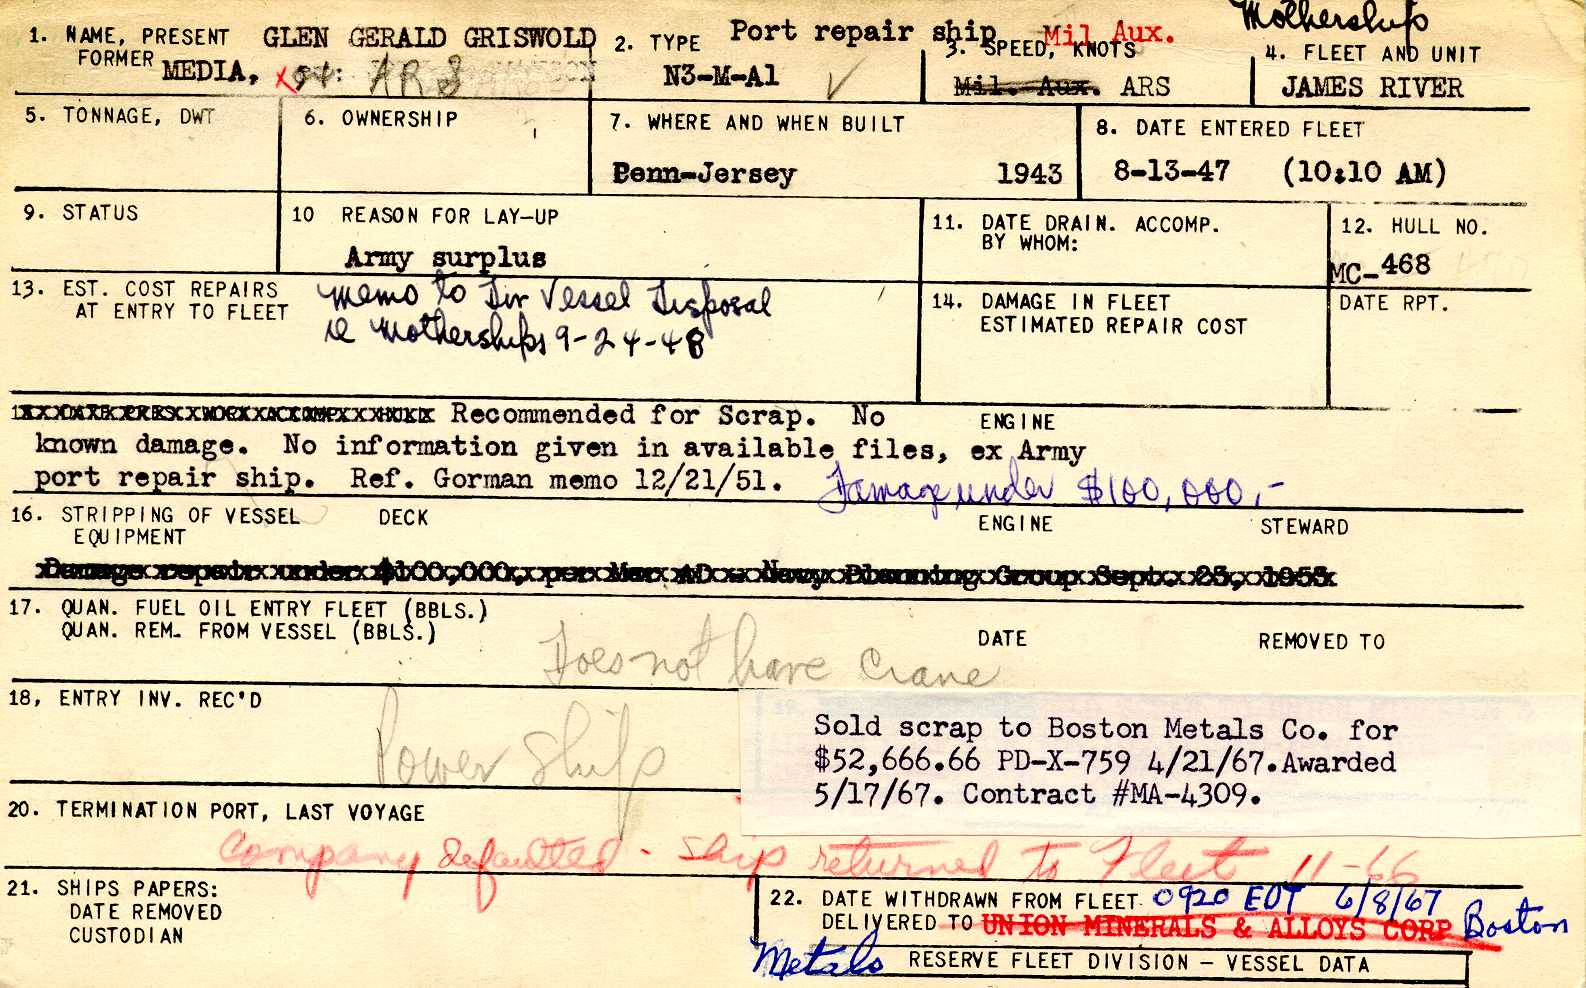 Mothership
1. NAME, PRESENT GLEN GERALD GRISWOLD 2. TYPE Port repair ship Mil Aux. 3. SPEED, KNOTS 4. FLEET AND UNIT
FORMER MEDIA, ARS N3-M-A1 ✓ Mil. Aux. ARS JAMES RIVER
5. TONNAGE, DWT 6. OWNERSHIP 7. WHERE AND WHEN BUILT 8. DATE ENTERED FLEET
Penn-Jersey 1943 8-13-47 (10:10 AM)
9. STATUS 10 REASON FOR LAY-UP 11. DATE DRAIN. ACCOMP. 12. HULL NO.
BY WHOM:
Army surplus MC-468
13. EST. COST REPAIRS memo to Dir Vessel Disposal 14. DAMAGE IN FLEET DATE RPT.
AT ENTRY TO FLEET re Motherships 9-24-48 ESTIMATED REPAIR COST
Recommended for Scrap. No ENGINE
known damage. No information given in available files, ex Army
port repair ship. Ref. Gorman memo 12/21/51. Damage under $100,000,-
16. STRIPPING OF VESSEL DECK ENGINE STEWARD
EQUIPMENT
Damage repair under $100,000, per Mar AD - Navy Planning Group Sept. 25, 1953
17. QUAN. FUEL OIL ENTRY FLEET (BBLS.)
QUAN. REM. FROM VESSEL (BBLS.) DATE REMOVED TO
Does not have crane
18, ENTRY INV. REC'D
Power Ship
Sold scrap to Boston Metals Co. for
$52,666.66 PD-X-759 4/21/67. Awarded
5/17/67. Contract #MA-4309.
20. TERMINATION PORT, LAST VOYAGE
Company defaulted - ship returned to Fleet 11-66
21. SHIPS PAPERS: 22. DATE WITHDRAWN FROM FLEET 0920 EDT 6/8/67
DATE REMOVED DELIVERED TO UNION MINERALS & ALLOYS CORP Boston
CUSTODIAN Metals RESERVE FLEET DIVISION - VESSEL DATA